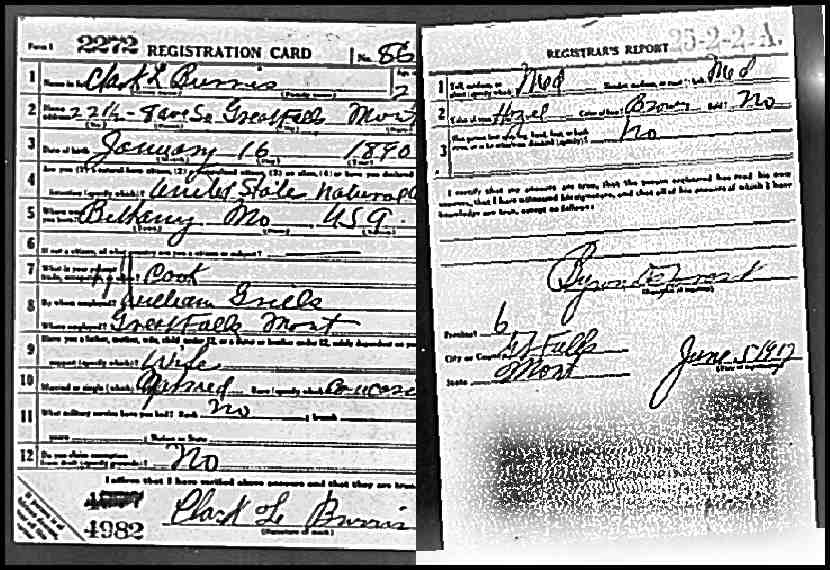 Form 1 2272 REGISTRATION CARD No. 86
1 Name in full Clark L Burris
(Family name)
2 Home address 22 1/2 - 8 ave So Great Falls Mont
3 Date of birth January 16 1890
4 Are you (1) a natural-born citizen, (2) a naturalized citizen, (3) an alien, (4) or have you declared your
intention (specify which)? United States Natural
5 Where were you born? Bethany Mo USA.
(Town) (State) (Nation)
6 If not a citizen, of what country are you a citizen or subject?
7 What is your present trade, occupation, or office? Cook
8 By whom employed? William Grills
Where employed? Great Falls Mont
9 Have you a father, mother, wife, child under 12, or a sister or brother under 12, solely dependent on you for
support (specify which)? Wife
10 Married or single (which)? Married Race (specify which)?
11 What military service have you had? Rank no ; branch
years ; Nation or State
12 Do you claim exemption from draft (specify grounds)? No
I affirm that I have verified above answers and that they are true
4982 Clark L Burris
(Signature or mark)
REGISTRAR'S REPORT 25-2-2-A.
1 Tall, medium, or short (specify which)? Med Slender, medium, or stout (which)? Med
2 Color of eyes? Hazel Color of hair? Brown Bald? No
3 Has person lost arm, leg, hand, foot, or both eyes, or is he otherwise disabled (specify)? No
I certify that my answers are true, that the person registered has read his own
answers, that I have witnessed his signature, and that all of his answers of which I have
knowledge are true, except as follows:
Byron
(Signature of registrar)
Precinct 6
City or County Gt Falls
State Mont
June 5 1917
(Date of registration)